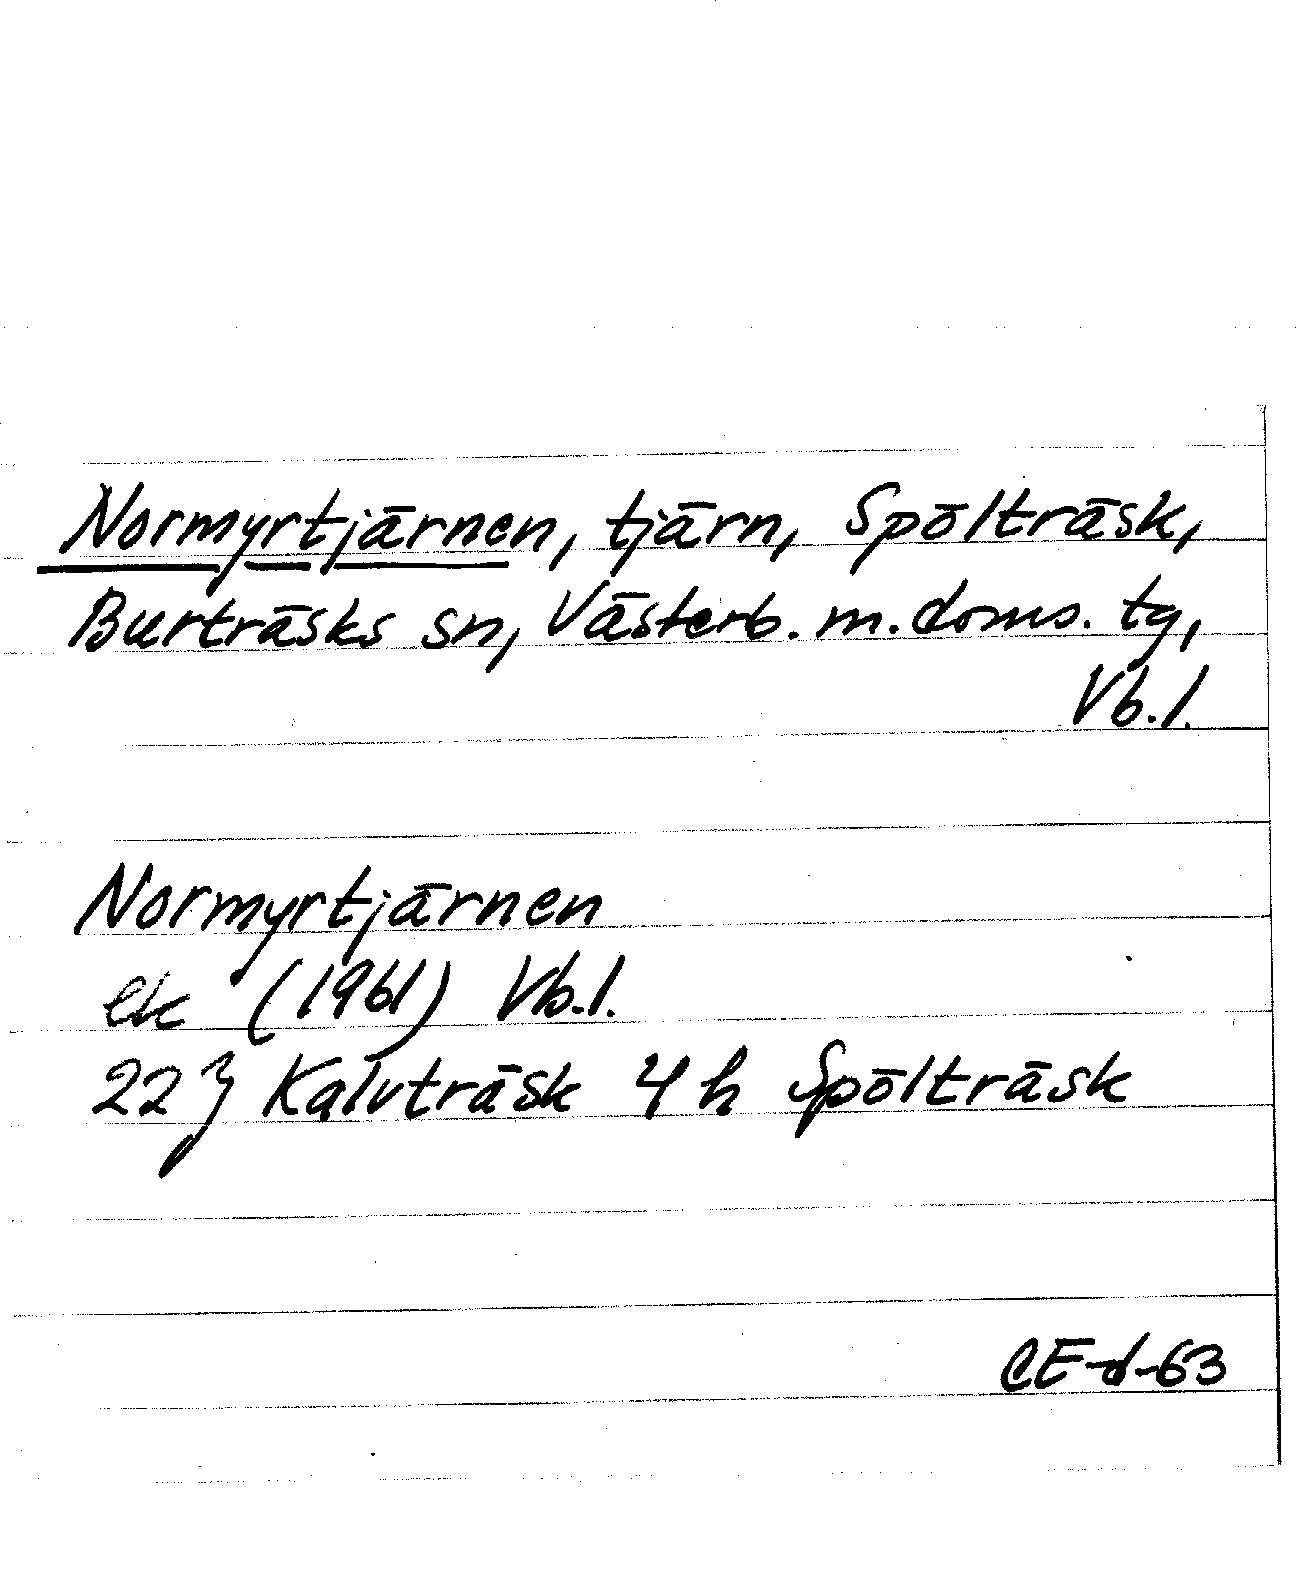 Normyrtjärnen, tjärn, Spölträsk,
Burträsks sn, Västerb. m. doms. tg,
Vb. l.
Normyrtjärnen
ek (1961) Vb. l.
22 J Kalvträsk 4 h Spölträsk
CE-d-63